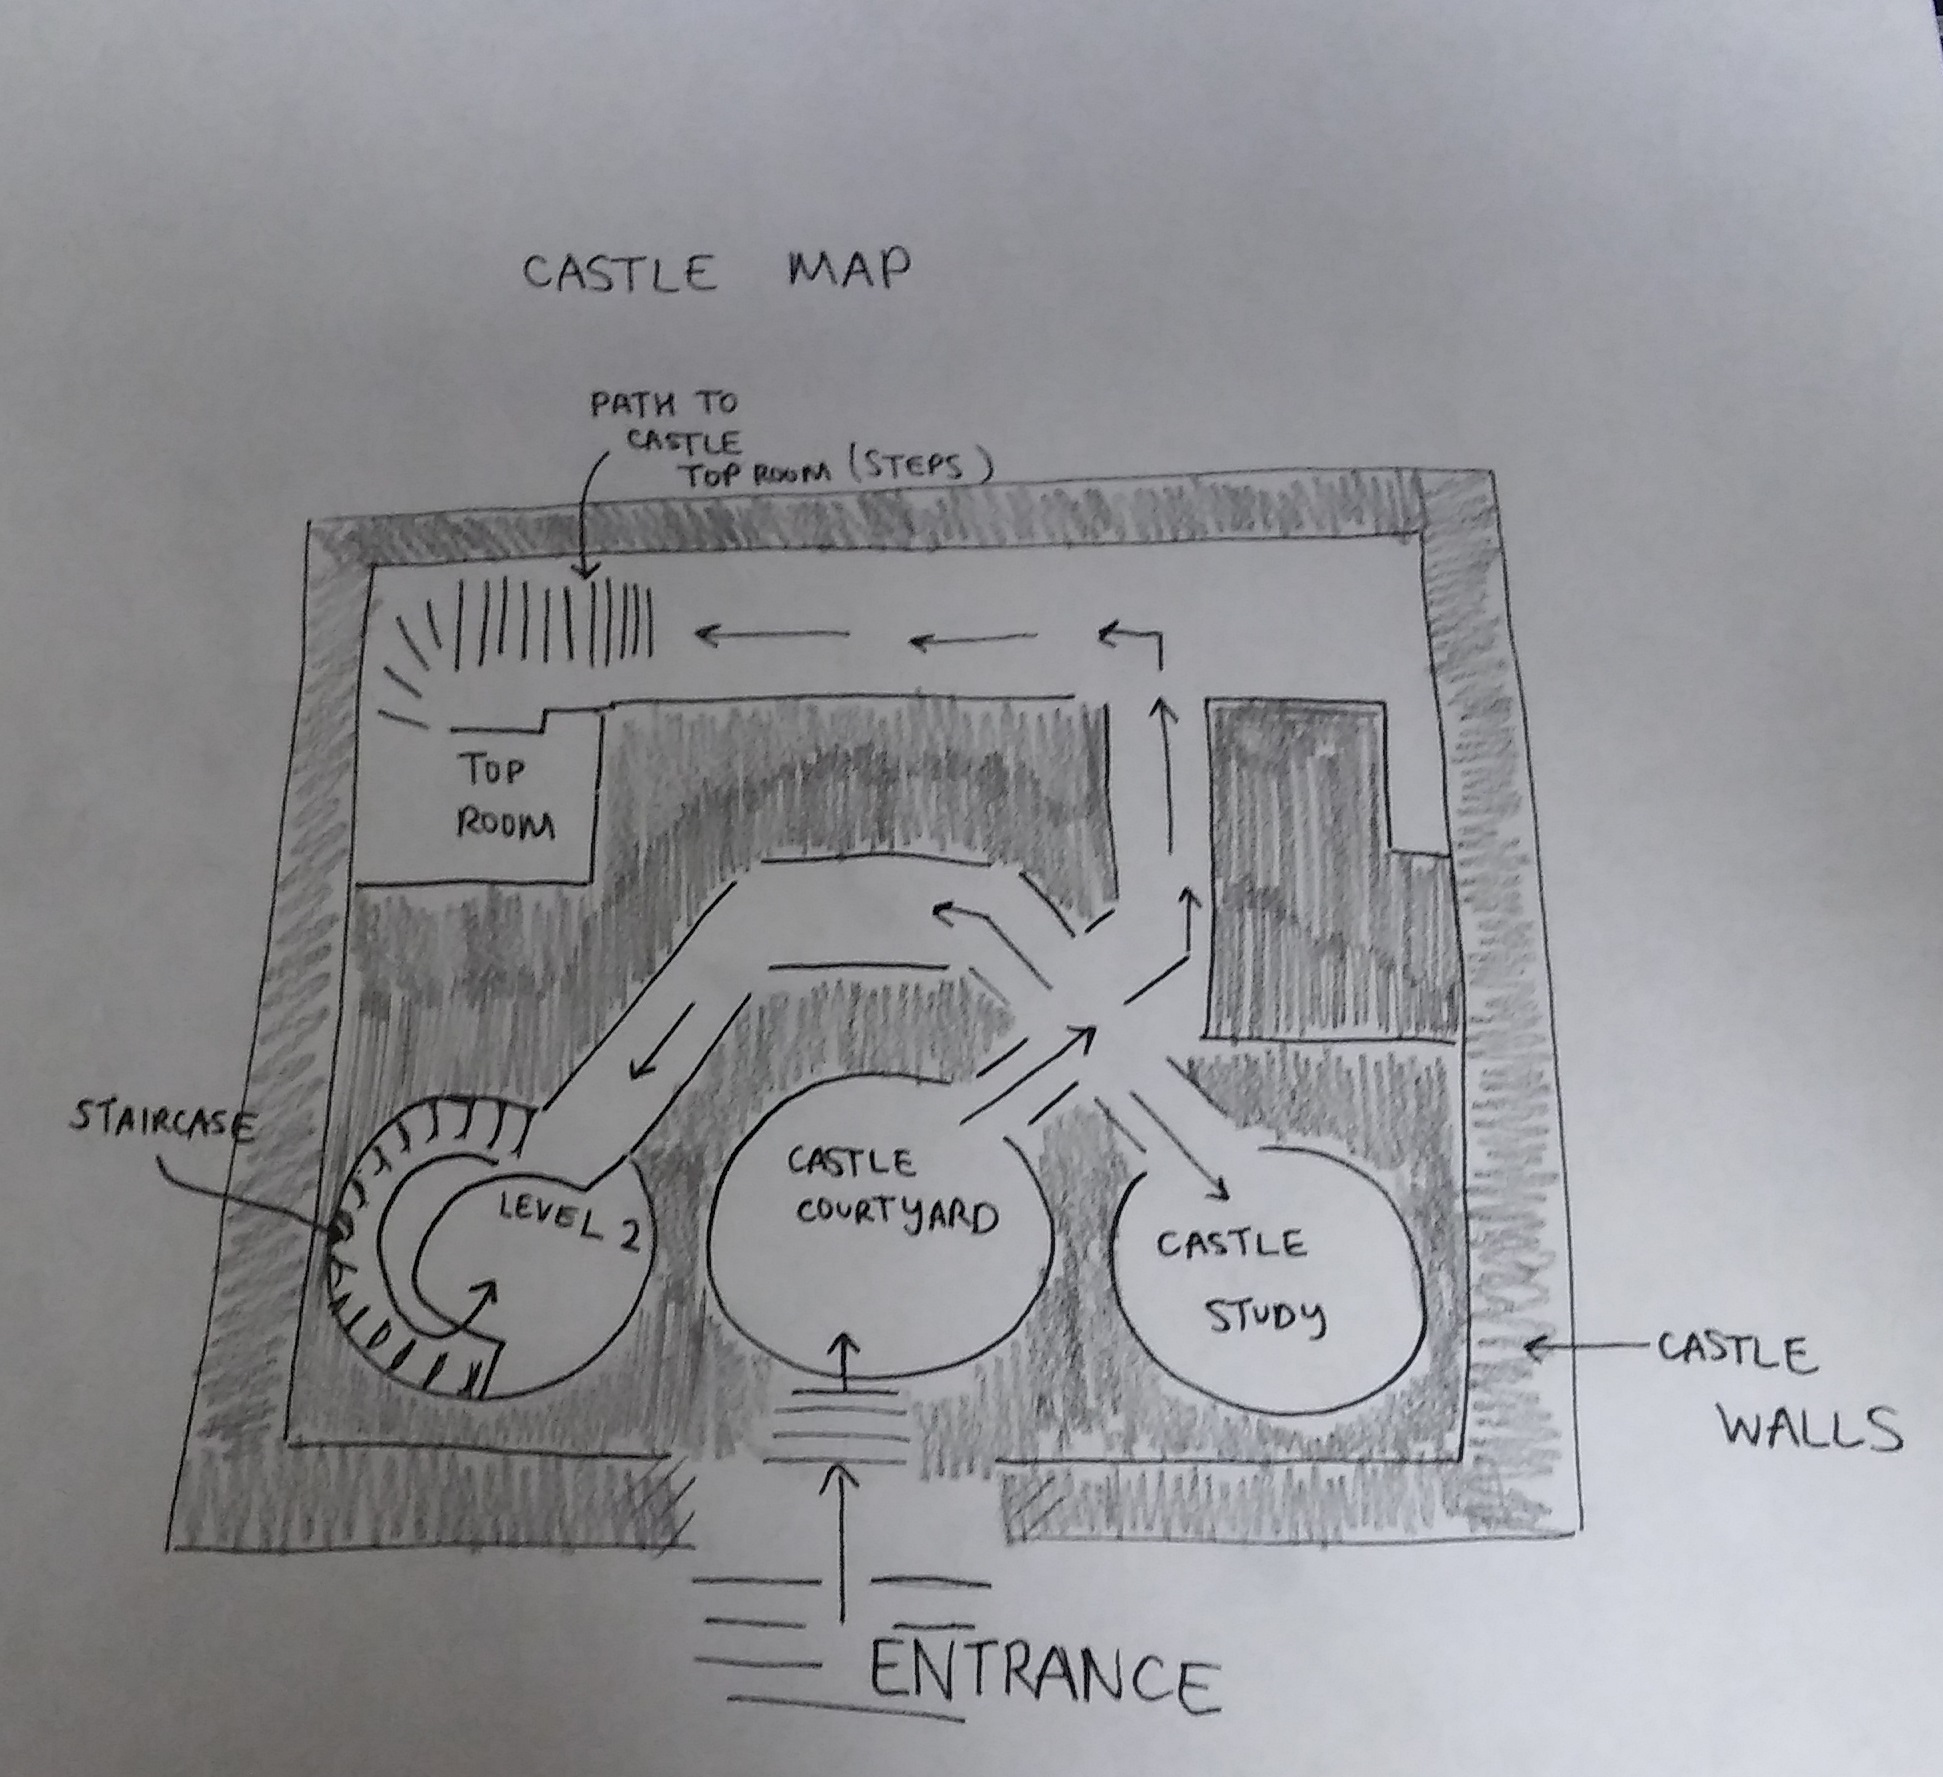 CASTLE MAP
PATH TO
CASTLE
TOP ROOM (STEPS)
TOP
ROOM
STAIRCASE
LEVEL 2
CASTLE
COURTYARD
CASTLE
STUDY
CASTLE
WALLS
ENTRANCE